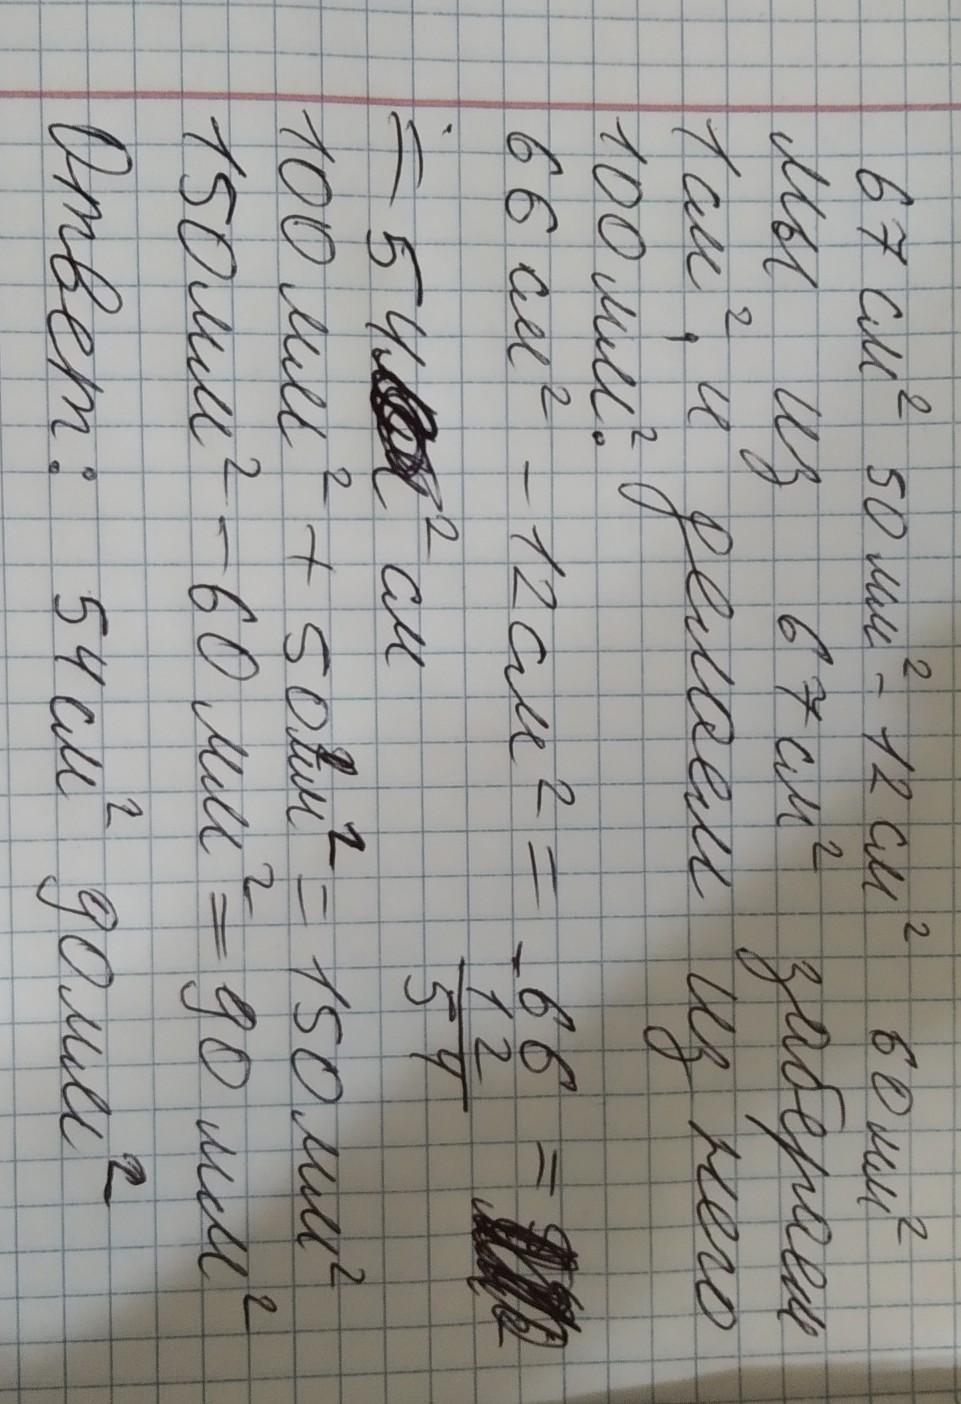 67 см² 50 мм² - 12 см² 60 мм²
Мы из 67 см² заберем
1 см², и делаем из него
100 мм².
66 см² - 12 см² = - 66 =
12
54
= 54 ² см
100 мм² + 50 мм² = 150 мм²
150 мм² - 60 мм² = 90 мм²
Ответ: 54 см² 90 мм²